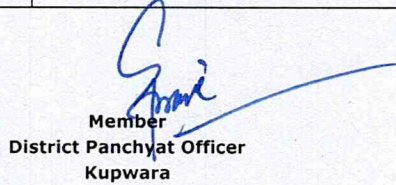 Member
District Panchyat Officer
Kupwara